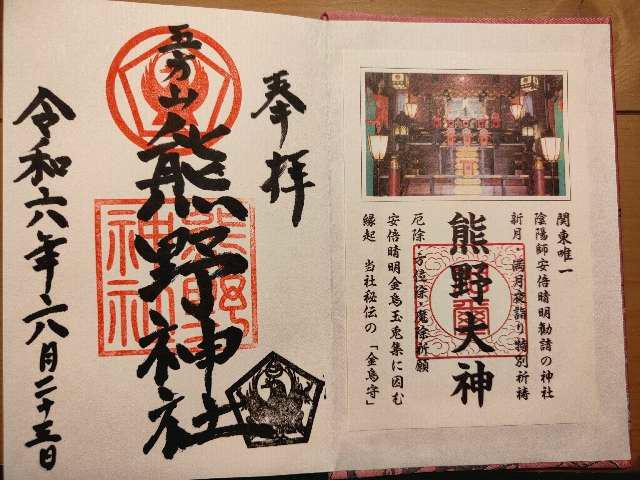 奉拝
五方山
熊野神社
熊野
神社
令和六年六月二十三日
関東唯一
陰陽師安倍晴明勧請の神社
新月・満月夜詣り特別祈祷
熊野大神
厄除・方位除・魔除祈願
安倍晴明金烏玉兎集に因む
縁起 当社秘伝の「金烏守」